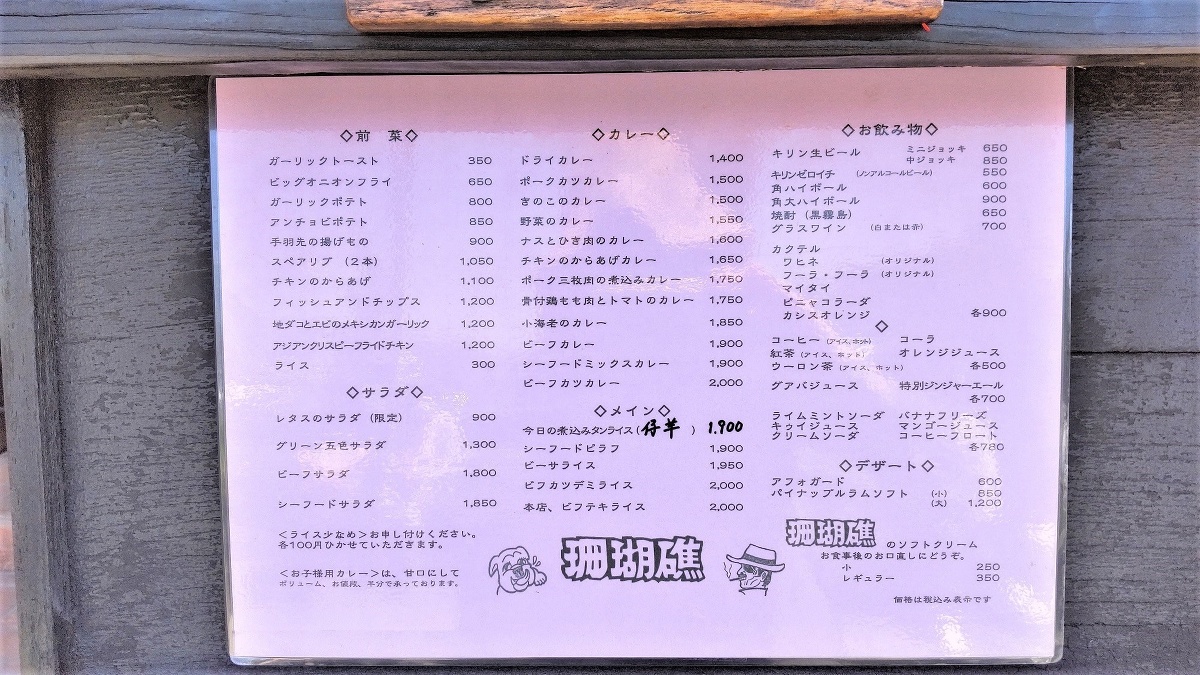 ◇前 菜◇
ガーリックトースト 350
ビッグオニオンフライ 650
ガーリックポテト 800
アンチョビポテト 850
手羽先の揚げもの 900
スペアリブ (2本) 1,050
チキンのからあげ 1,100
フィッシュアンドチップス 1,200
地ダコとエビのメキシカンガーリック 1,200
アジアンクリスピーフライドチキン 1,200
ライス 300
◇サラダ◇
レタスのサラダ (限定) 900
グリーン五色サラダ 1,300
ビーフサラダ 1,800
シーフードサラダ 1,850
<ライス少なめ>お申し付けください。
各100円ひかせていただきます。
<お子様用カレー>は、甘口にして
ボリューム、お値段、半分で承っております。
◇カレー◇
ドライカレー 1,400
ポークカツカレー 1,500
きのこのカレー 1,500
野菜のカレー 1,550
ナスとひき肉のカレー 1,600
チキンのからあげカレー 1,650
ポーク三枚肉の煮込みカレー 1,750
骨付鶏もも肉とトマトのカレー 1,750
小海老のカレー 1,850
ビーフカレー 1,900
シーフードミックスカレー 1,900
ビーフカツカレー 2,000
◇メイン◇
今日の煮込みタンライス(仔羊) 1,900
シーフードピラフ 1,900
ビーサライス 1,950
ビフカツデミライス 2,000
本店、ビフテキライス 2,000
珊瑚礁
◇お飲み物◇
キリン生ビール ミニジョッキ 650
中ジョッキ 850
キリンゼロイチ (ノンアルコールビール) 550
角ハイボール 600
角大ハイボール 900
焼酎 (黒霧島) 650
グラスワイン (白または赤) 700
カクテル
ワヒネ (オリジナル)
フーラ・フーラ (オリジナル)
マイタイ
ピニャコラーダ
カシスオレンジ 各900
◇
コーヒー (アイス、ホット) コーラ
紅茶 (アイス、ホット) オレンジジュース
ウーロン茶 (アイス、ホット) 各500
グアバジュース 特別ジンジャーエール
各700
ライムミントソーダ バナナフリーズ
キゥイジュース マンゴージュース
クリームソーダ コーヒーフロート
各780
◇デザート◇
アフォガード 600
パイナップルラムソフト (小) 850
(大) 1,200
珊瑚礁 のソフトクリーム
お食事後のお口直しにどうぞ。
小 250
レギュラー 350
価格は税込み表示です